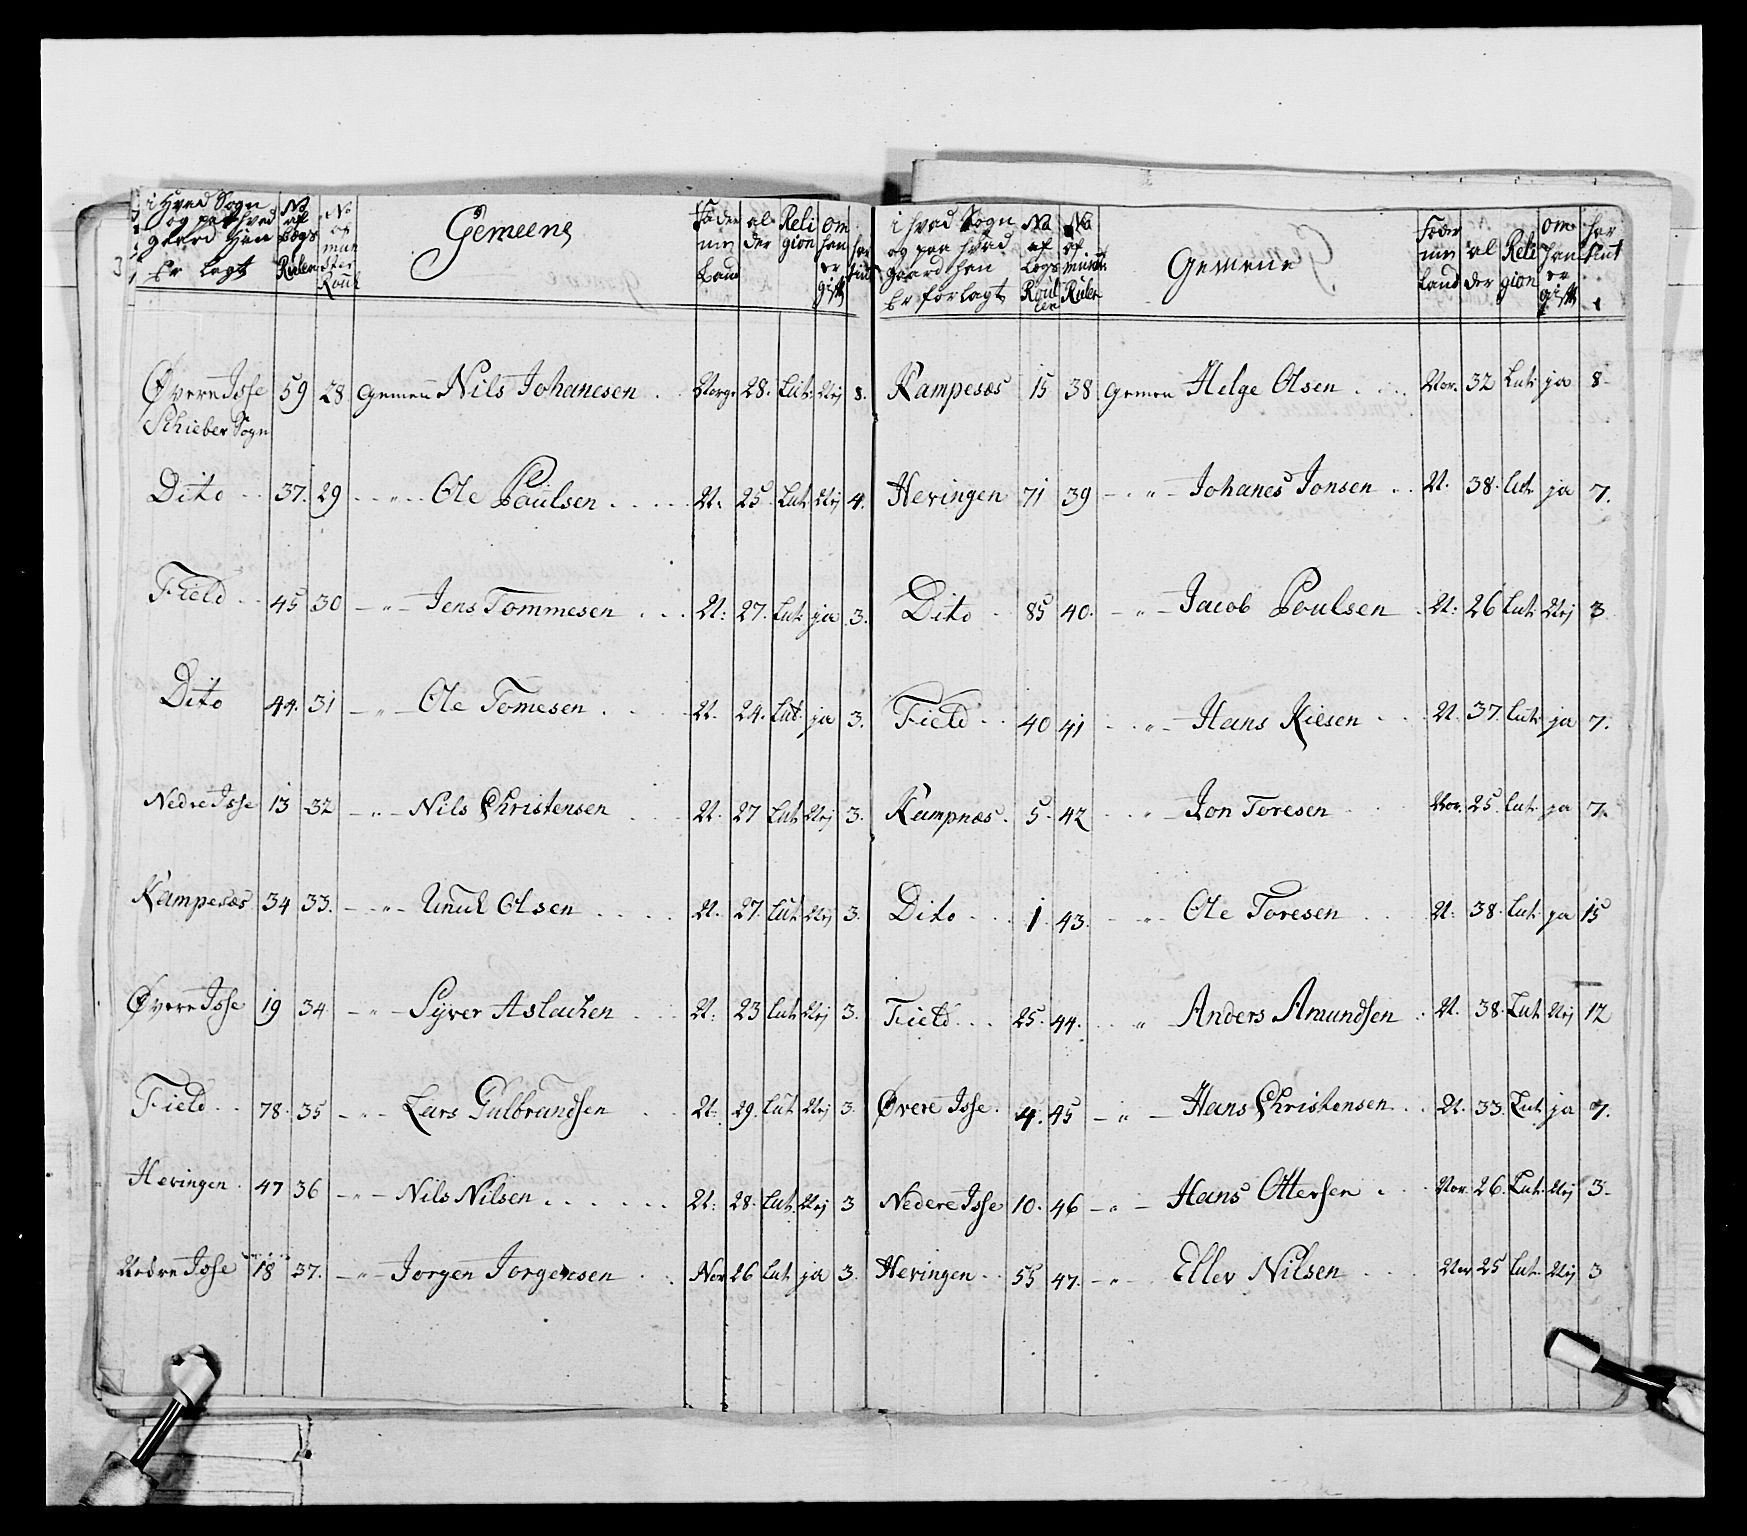 i Hvad Sogn
og paa hvad
gaard Han
Er Lagt
No af Lægs Rulen
No af mynster Roul
Gemeene
Føde mes Land
al der
Reli gion
om han er gift
har tient
Øvere Isse 59 28 Gemen Nils Johanesen . Norge 28. Lut. Nej 8.
Schieber Sogn
Dito .. 37. 29 - - " - Ole Poulsen . . . . . N. 25. Lut Nej 4.
Field .. 45 30 - " - Jens Tommesen . . . N: 27. Lut ja 3.
Dito 44. 31 - " - Ole Tomesen . . . N. 24. Lut. ja 3.
Nedre Isse 13 32 - " - Nils Christensen . . . N. 27 Lut Nej 3.
Kampesæs 34 33. - " - Knud Olsen . . . . N. 27. Lut. Nej 3.
Øvere Isse 19 34 - " - Syver Aslachen . . . N: 23 Lut. Nej 3.
Field . . 78. 35 - " - Lars Gulbrandsen . . N. 29. Lut Nej 3.
Heringen . 47 36 - " - Nils Nilsen . . . . . . N: 28. Lut. Nej 3
Nedre Isse 18 37. - " - Jorgen Jorgensen . . Nor 26 Lut. ja 3.
i hvad Sogn
og paa hvad
gaard han
Er forlagt
No af Lægs Roul len
No af münster Rulen
Gemene
Føde mes Land
al der
Reli gion
om han er gift
har tient
Kampesæs 15 38 Gemen Helge Olsen . . . Nor. 32 Lut ja 8
Heringen 71 39 - " - Johanes Jonsen . . N. 38. Lut ja 7.
Dito .. 85 40. - " - Jacob Poulsen . N. 26 Lut Nej 3
Field . . 40 41 - " - Hans Kilsen . . . N. 37. Lut ja 7.
Kampnæs. 5. 42 . . " - Jon Toresen . . Nor. 25. Lut. ja 7.
Dito . . . 1. 43. - " - Ole Toresen . . . N. 38. Lut. ja 15
Field . . . 25. 44. . . " - Anders Amundsen . . N. 38. Lut Nej 12
Øvere Isse. 4. 45 - " - Hans Christensen . . N. 33. Lut ja 7.
Nedere Isse 10. 46 - " - Hans Ottersen . . . Nor. 26. Lut. Nej 3.
Heringen . . 55 47. - " - Ellev Nilsen . . . Nor 25 Lut. Nej 3